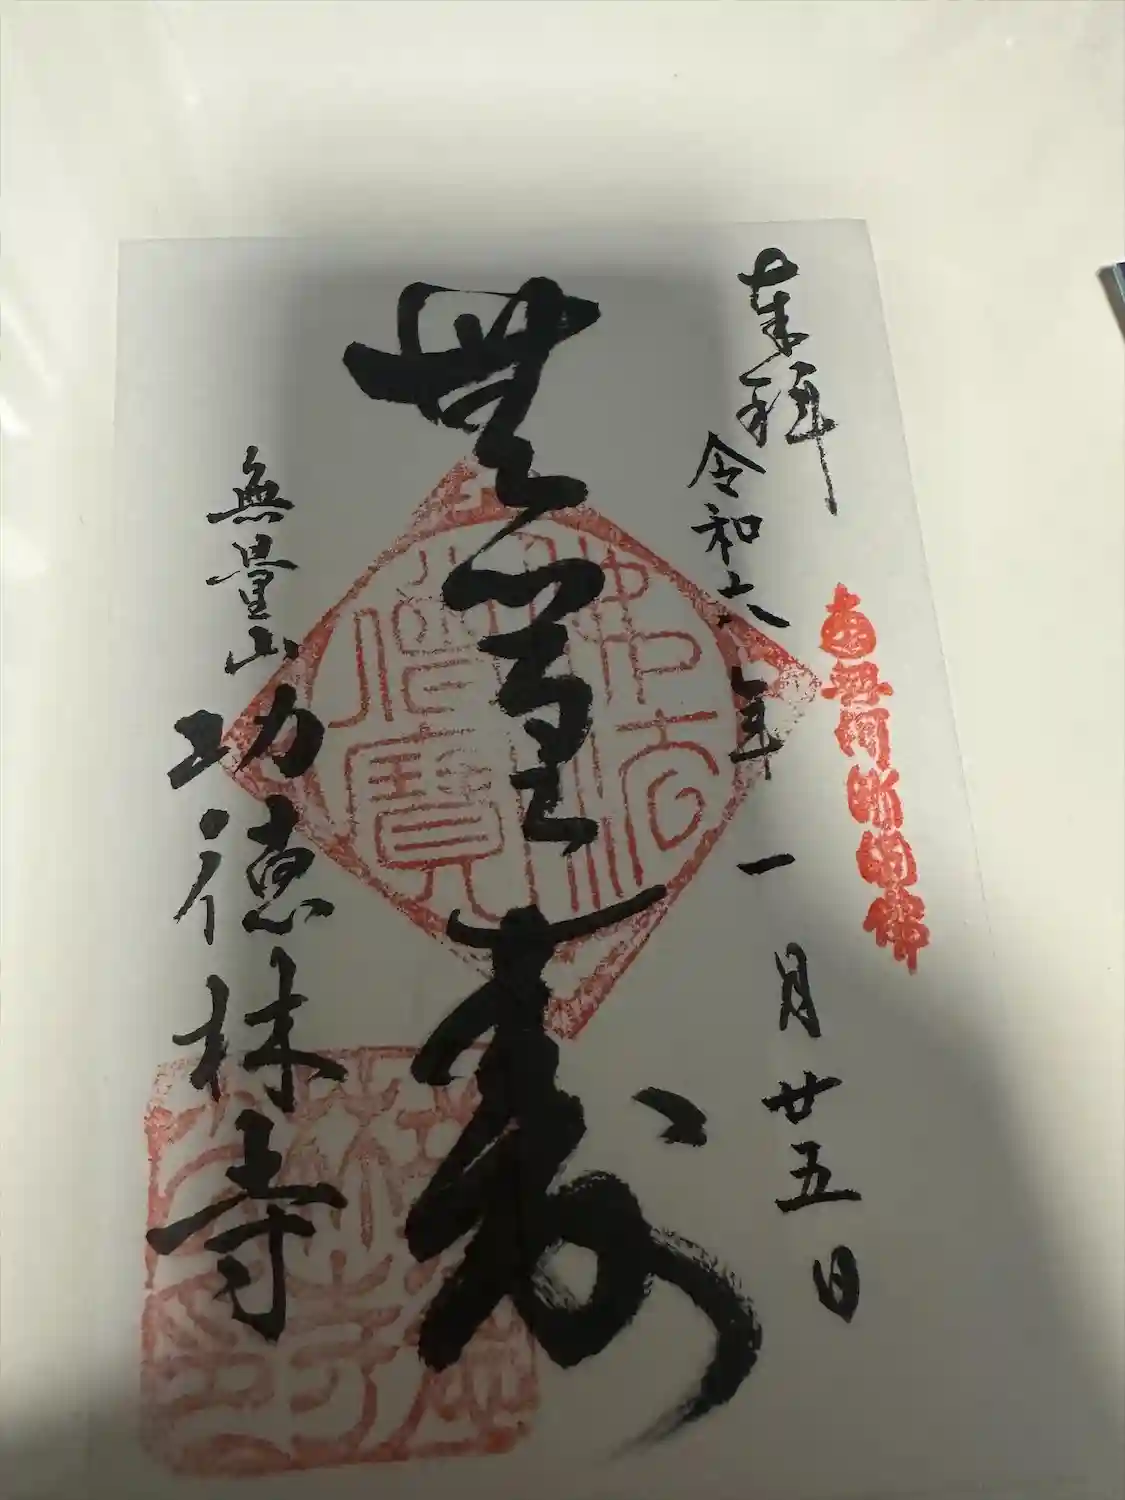 奉拝
令和六年一月廿五日
南無阿弥陀佛
無量壽
佛法僧寶
無量山
功徳林寺